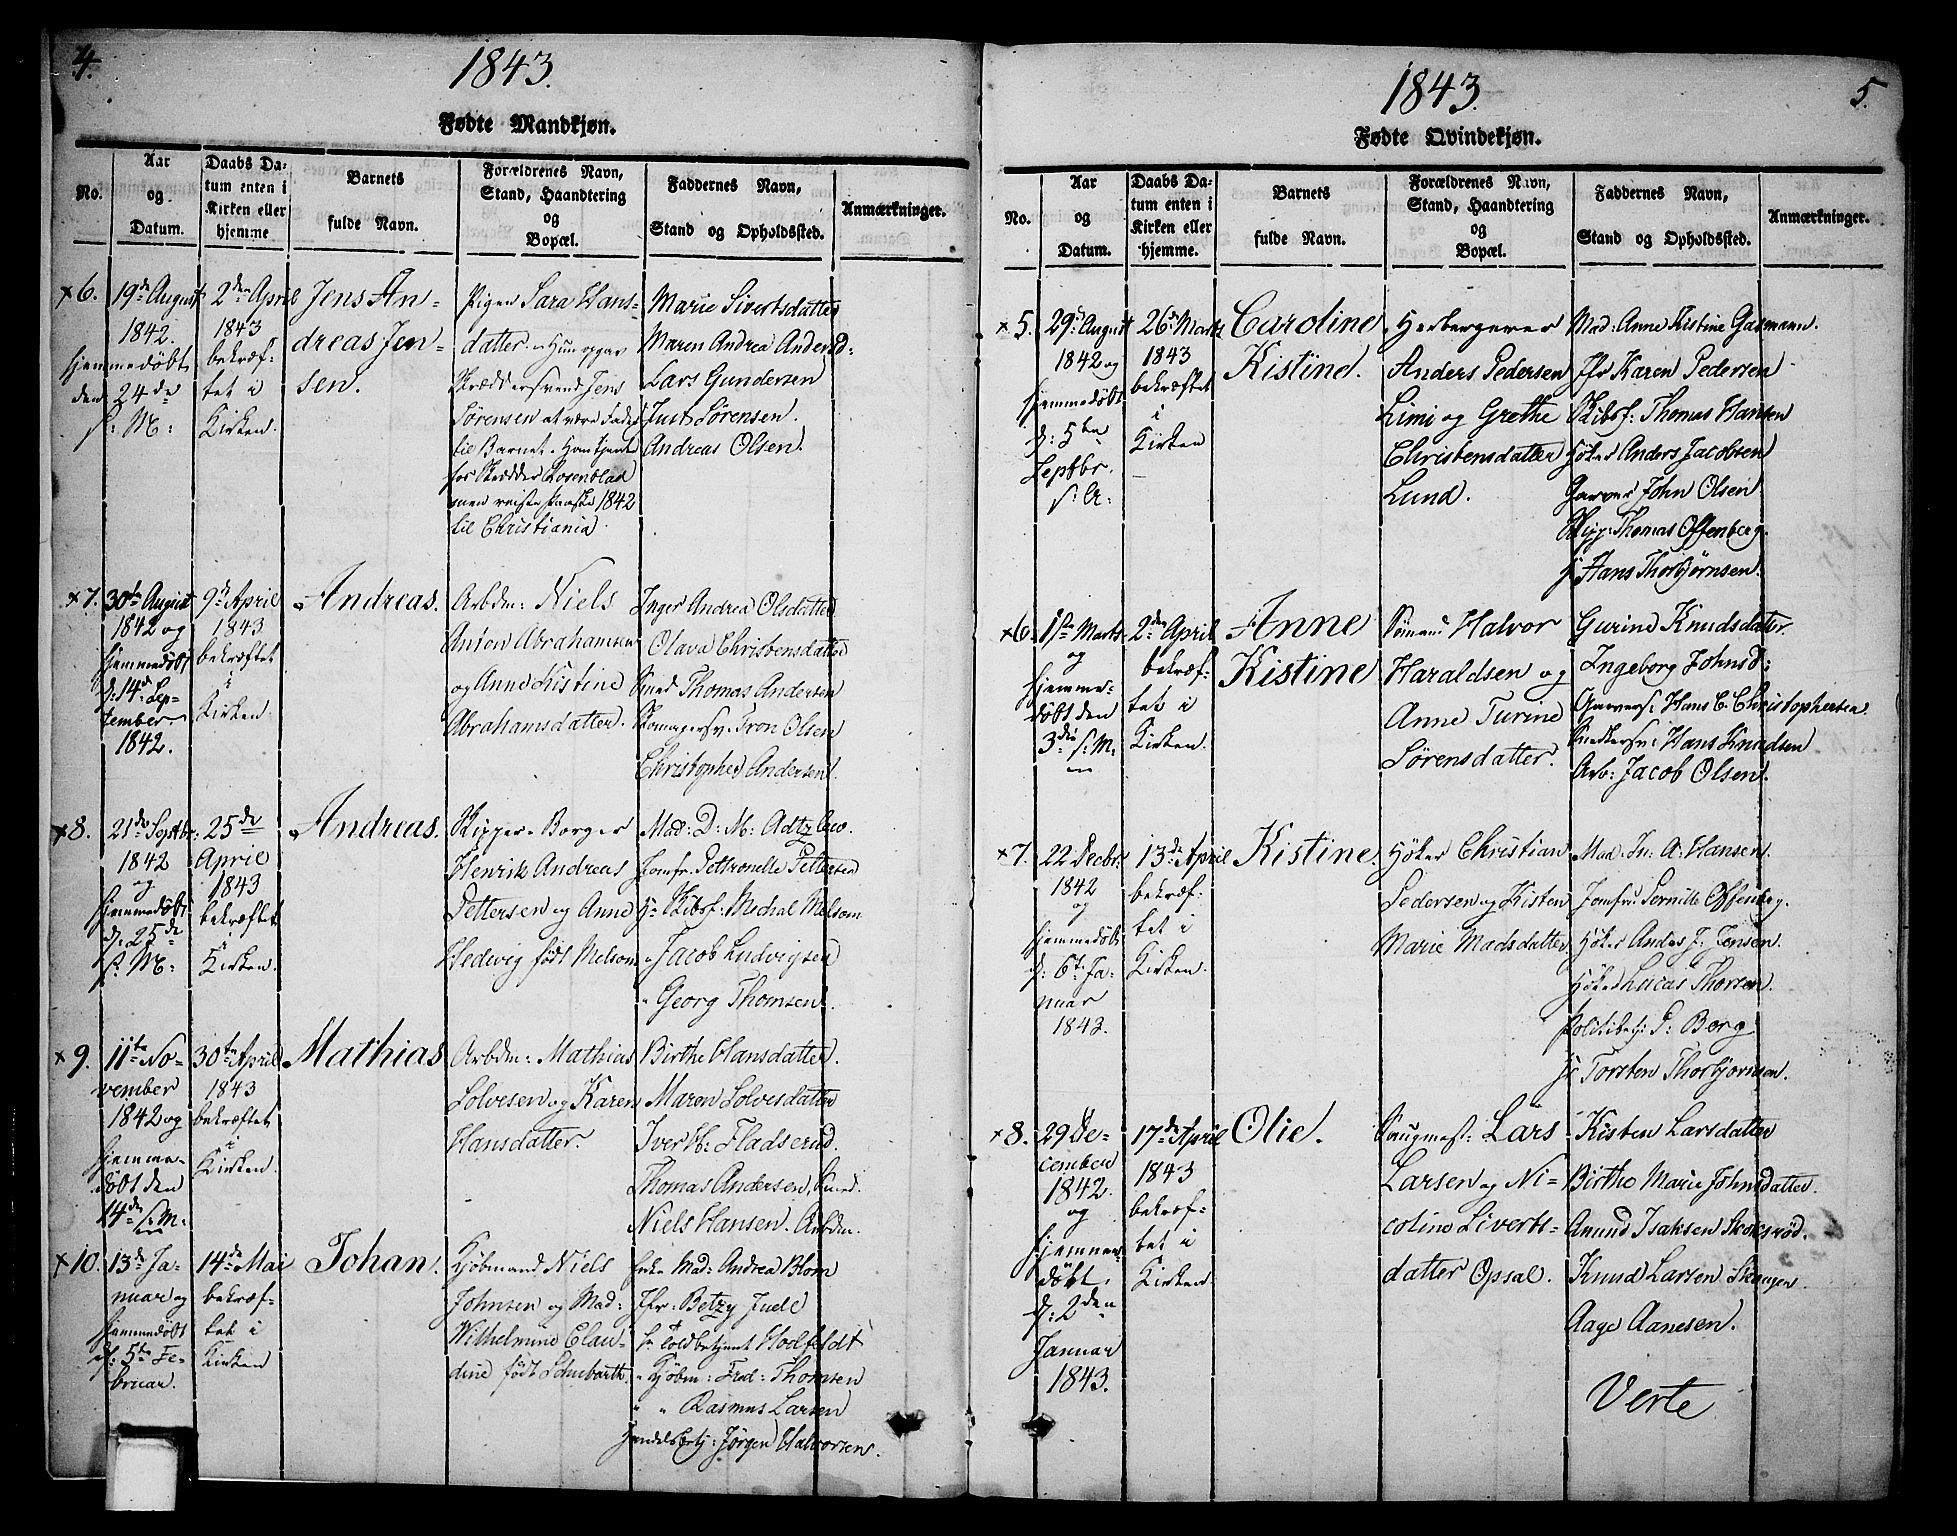 4.
1843.
Fødte Mandkjøn.
No.
Aar
og
Datum.
Daabs Da-
tum enten i
Kirken eller
hjemme
Barnets
fulde Navn.
Forældrenes Navn,
Stand, Haandtering
og
Bopæl.
Faddernes Navn,
Stand og Opholdssted.
Anmærkninger.
×6.
19de August
1842.
hjemmedøbt
den 24de
s: M:
2den April
1843
bekræf-
tet i
Kirken.
Jens An-
dreas Jen-
sen.
Pigen Sara Hans-
datter. Hun opgav
Skræddersvend Jens
Sørensen at være Fader
til Barnet. Han tjente
for Skrædder Rosenblad
men reiste Paaske 1842
til Christiania.
Marie Sivertsdatter
Maren Andrea Andersd:
Lars Gundersen
Just Sørensen.
Andreas Olsen.
×7.
30te August
1842 og
hjemmedøbt
d: 14de Sep-
tember
1842.
9de April
1843
bekræftet
i
Kirken.
Andreas.
Arbdm: Niels
Anton Abrahamsen
og Anne Kistine
Abrahamsdatter.
Inger Andrea Olsdatter
Olava Christensdatter
Smed Thomas Andersen
Skomagersv: Tron Olsen
Christopher Andersen.
×8.
21de Septbr:
1842
og
hjemmedøbt
d: 25de
s: M:
25de
April
1843
bekræftet
i
Kirken.
Andreas.
Skipper Borger
Henrik Andreas
Pettersen og Anne
Hedvig født Melsom
Mad: D: M: Adtzlew.
Jomfr: Pettronelle Pettersen
Hr Skibsf: Michal Melsom
" Jacob Ludvigsen
" Georg Thomsen.
×9.
11te No-
vember
1842 og
hjemme-
døbt den
14de s: M:
30te April
1843
bekræftet
i
Kirken.
Mathias
Arbdm: Mathias
Solvesen og Karen
Hansdatter.
Birthe Hansdatter.
Maren Solvesdatter
Iver H: Fladserud.
Thomas Andersen, Smed.
Niels Hansen. Arbdm.
×10.
13de Ja-
nuar og
hjemmedøbt
d: 5te Fe-
bruar.
14de Mai
bekræf-
tet i
Kirken
Johan.
Kjøbmand Niels
Johnsen og Mad:
Wilhelmine Clau-
dine født Schubarth.
Enke Mad: Andrea Blom
Jfr: Betzy Juell
Hr Toldbetjent Hodfeldt
" Kjøbm: Fred: Thomsen
" " Rasmus Larsen
Handelsbetj: Jørgen Halvorsen.
5.
1843.
Fødte Qvindekjøn.
No.
Aar
og
Datum.
Daabs Da-
tum enten i
Kirken eller
hjemme.
Barnets
fulde Navn.
Forældrenes Navn,
Stand, Haandtering
og
Bopæl.
Faddernes Navn,
Stand og Opholdssted.
Anmærkninger.
×5.
29de August
1842 og
hjemmedøbt
d: 5te
Septbr.
s: A:
26de Marts
1843
bekræftet
i
Kirken
Caroline
Kistine.
Herbergerer
Anders Pedersen
Limi og Grethe
Christensdatter
Lund.
Mad: Anne Kistine Gasmann.
Jfr Karen Pedersen
Skibsf: Thomas Hansen
Høker Anders Jacobsen
Garver John Olsen
Skipp: Thomas Offenberg.
Hans Thorbjørnsen.
×6.
1ste Marts
og
hjemme-
døbt den
3die s: M:
2den April
bekræf-
tet i
Kirken.
Anne
Kistine
Sømand Halvor
Haraldsen og
Anne Turine
Sørensdatter.
Gurine Knudsdatter.
Ingeborg Johnsd:
Garvers: Hans C. Christophersen.
Snedkersv: Hans Knudsen
Arb: Jacob Olsen.
×7.
22 Decbr:
1842
og
hjemmedøbt
d: 6te Ja-
nuar
1843.
13de April
bekræf-
tet i
Kirken.
Kistine.
Høker Christian
Pedersen og Kisten
Marie Madsdatter.
Mad. In: A: Hansen.
Jomfru Pernille Offenberg.
Høker Andes J. Jensen.
Høker Lucas Thorsen.
Politibetj: P: Berg
Hr Torsten Thorbjørnsen.
×8.
29 De-
cember
1842.
og
hjemme-
døbt.
d: 2den
Januar
1843.
17de April
1843
bekræf-
tet i
Kirken.
Olie.
Saugmest: Lars
Larsen og Ni-
coline Siverts-
datter Opsal.
Kisten Larsdatter
Birthe Marie Johnsdatter.
Amund Isaksen Skoksrød.
Knud Larsen Skougen
Aage Aanesen.
Verte